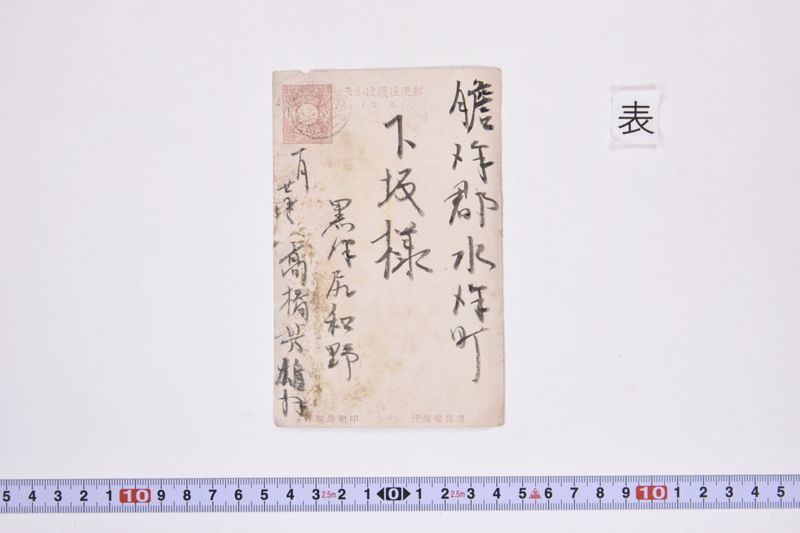 郵便往復はがき
膽沢郡水沢町
下坂様
黒沢尻和野
高橋
一月
逓信省発行
印刷局製造
表
5 4 3 2 1 10 9 8 7 6 5 4 3 2.5m 2 1 0 1 2 2.5m 3 4 5 6 7 8 9 10 1 2 3 4 5